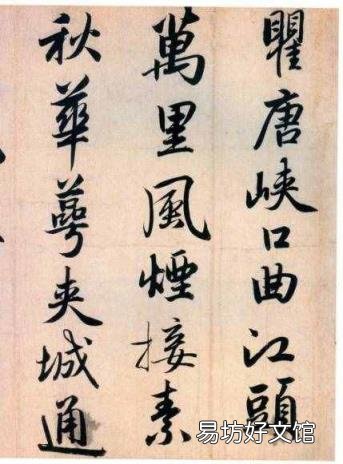 瞿唐峽口曲江頭
萬里風煙接素
秋華萼夾城通
易坊好文馆